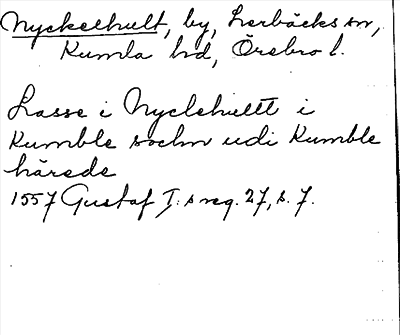 Nyckelhult, by, Lerbäcks sn,
Kumla hd, Örebro l.
Lasse i Nyclehultt i
Kumble sochn udi Kumble
härede
1557 Gustaf I:s reg. 27, s. 7.